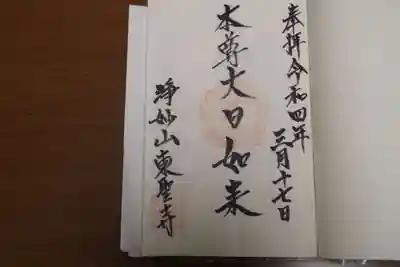 奉拝令和四年
三月十七日
本尊大日如来
浄妙山東聖寺